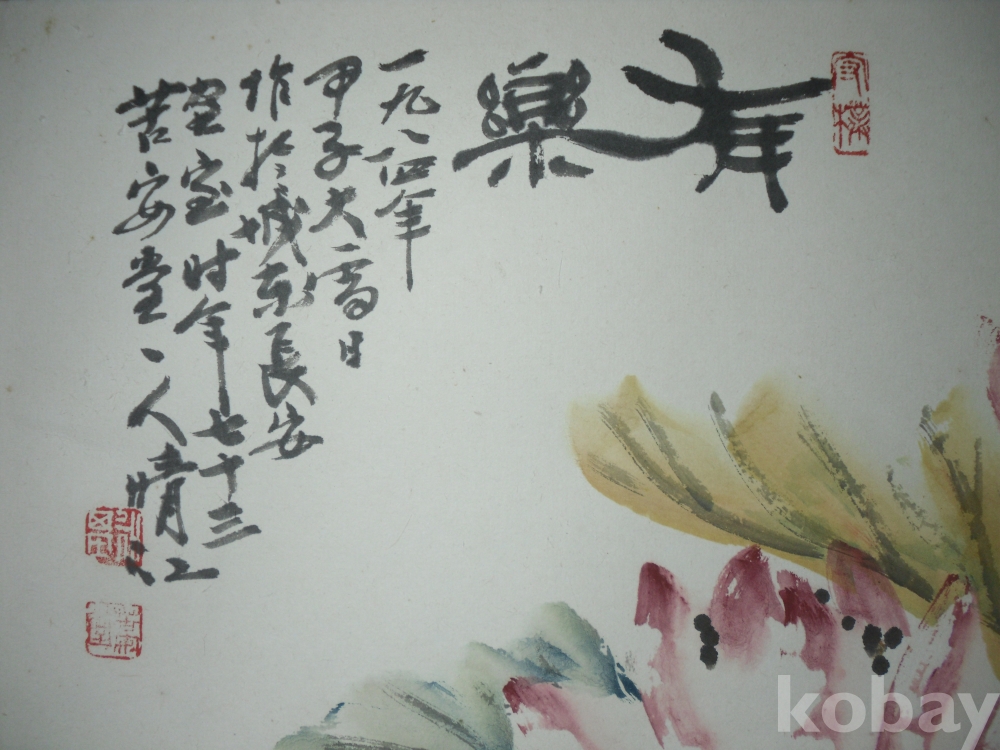 有樂
一九八四年
甲子大雪日
作於城东長安
室时年七十三
苦安堂人晴江
kobay